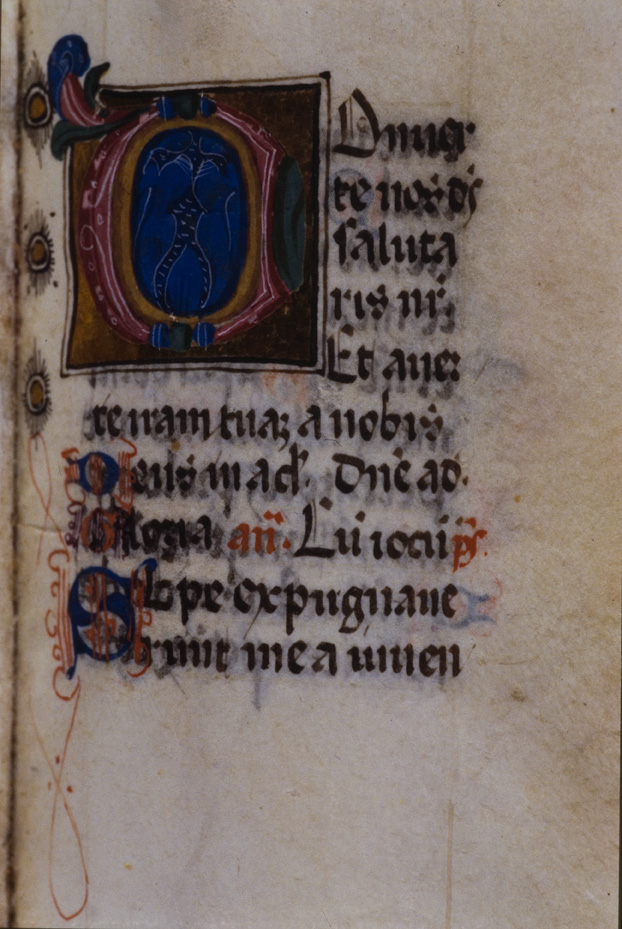 Onuer
te nos ds
saluta
ris nr.
Et auer
te iram tuaz a nobis
Deus in ad. Dne ad.
Gloria an. Cu iocu ps.
Sepe expugnaue
runt me a iuuen